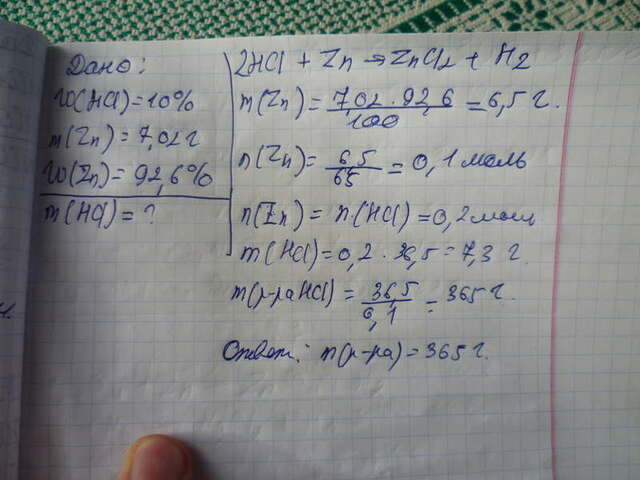 Дано:
W(HCl)=10%
m(Zn)=7,02г
W(Zn)=92,6%
m(HCl)=?
2HCl + Zn → ZnCl2 + H2
m(Zn)= 7,02 · 92,6 / 100 = 6,5 г.
n(Zn)= 6,5 / 65 = 0,1 моль
n(Zn) = n(HCl)=0,2моль
m(HCl)=0,2 · 36,5 = 7,3 г.
m(р-раHCl) = 36,5 / 0,1 = 365г.
Ответ: m(р-ра)=365г.